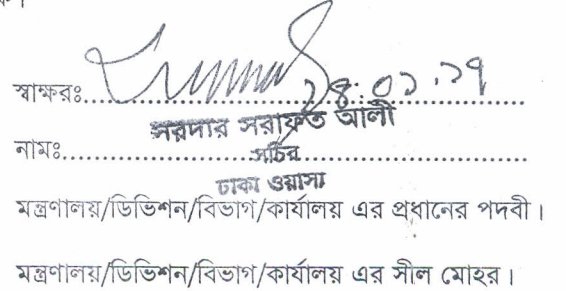 স্বাক্ষরঃ
২৪.০১.১৭
সরদার সরাফত আলী
নামঃ
সচিব
ঢাকা ওয়াসা
মন্ত্রণালয়/ডিভিশন/বিভাগ/কার্যালয় এর প্রধানের পদবী।
মন্ত্রণালয়/ডিভিশন/বিভাগ/কার্যালয় এর সীল মোহর।